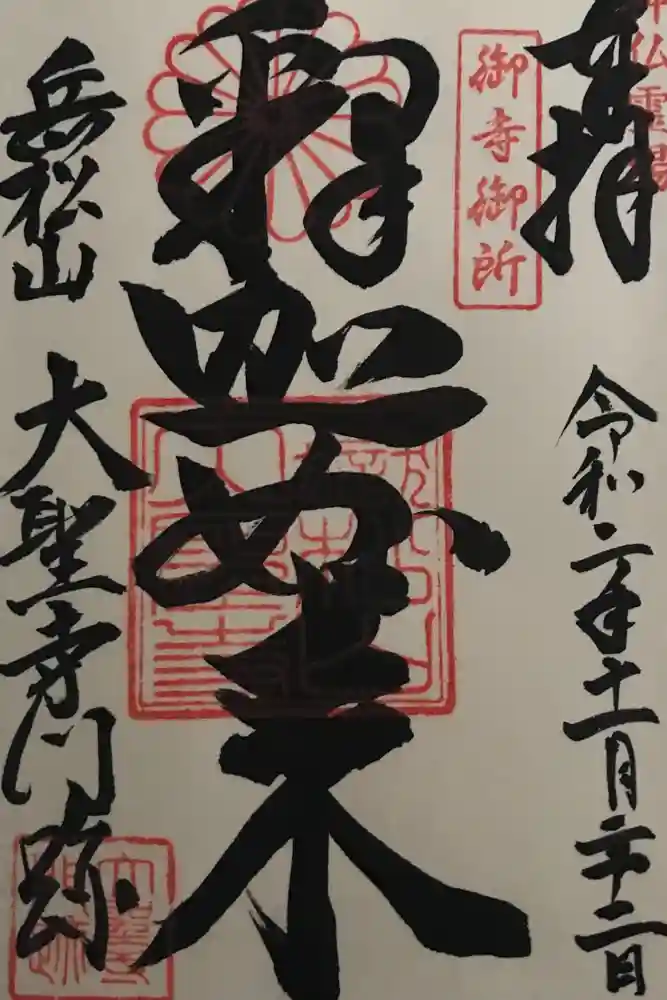 奉拝
神仏霊場
令和二年十一月二十二日
御寺御所
釋迦如来
岳松山
大聖寺門跡